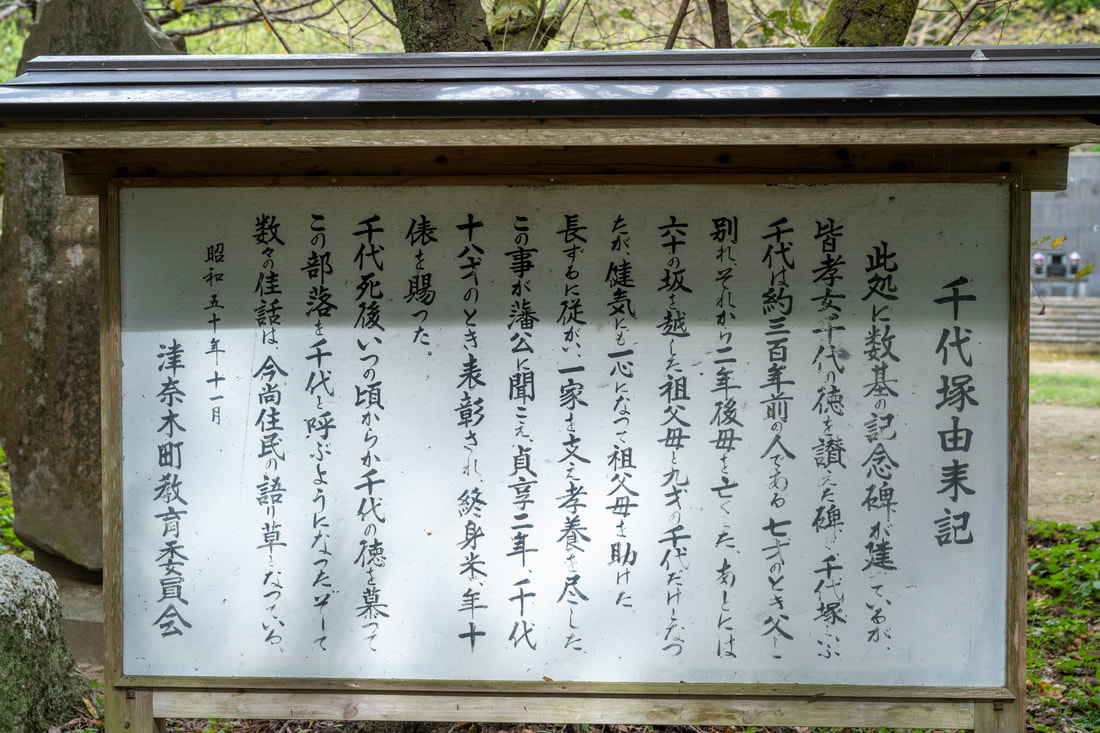 千代塚由来記
此処に数基の記念碑が建っているが、
皆孝女千代の徳を讃えた碑で千代塚といふ
千代は約三百年前の人である 七才のとき父に
別れ、それから二年後母を亡くした、あとには
六十の坂を越した祖父母と九才の千代だけとなつ
たが健気にも一心になつて祖父母を助けた
長ずるに従がい、一家を支え孝養を尽した
この事が藩公に聞こえ、貞享二年、千代
十八才のとき表彰され、終身米、年十
俵を賜った。
千代死後いつの頃からか千代の徳を慕つて
この部落を千代と呼ぶようになつたそして
数々の佳話は、今尚住民の語り草となつている。
昭和五十年十一月
津奈木町教育委員会